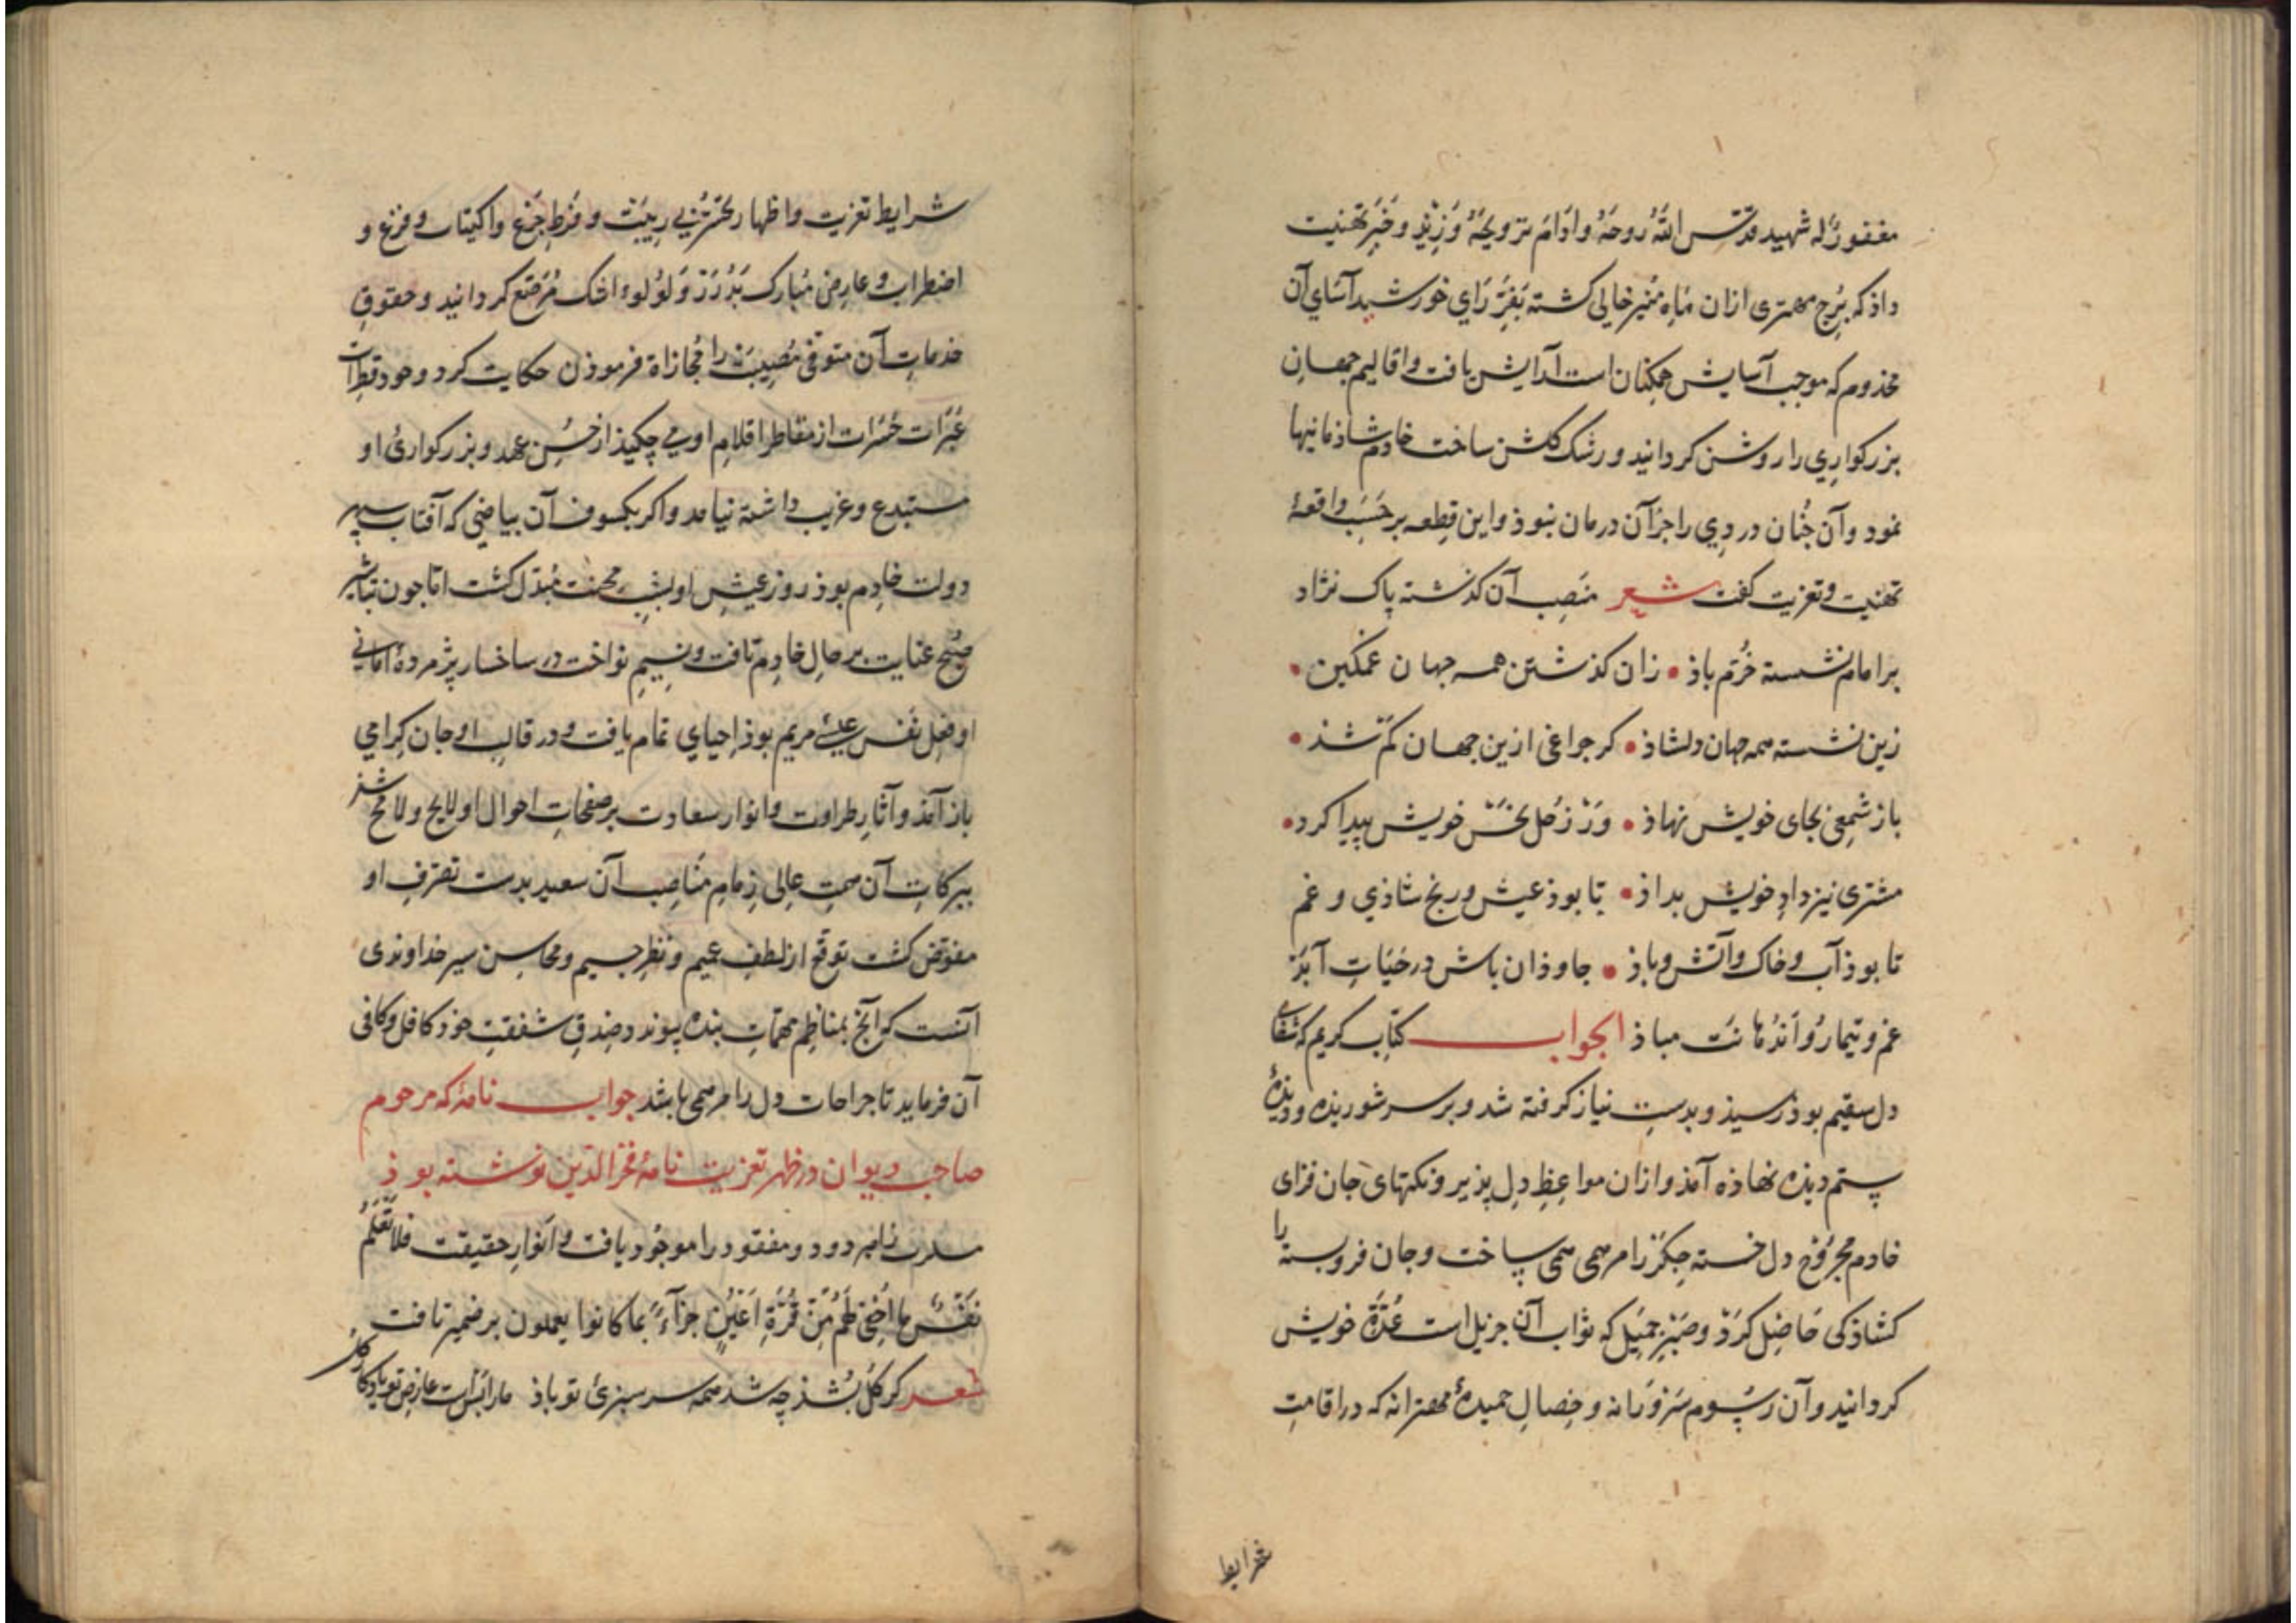 مغفورٌ له شهید قدّس اللّه روحَهُ وادَامَ ترویحَهُ وَزِیْدَ وخَبَرِ تهنیت
داذ که بُرج مهتری ازان مَاهِ مُنیر خالی کشته بَفَرِّ رَایِ خورشید آسَای آن
مخذوم که موجب آسایش همکنان است آرایش یافت و اقالیم جهانِ
بزرکواری را روشن کردانید و رشک کلشن ساخت خادم شاذمانیها
نمود وآن جُنان دردِي را جز آن درمان نبوذ و این قِطعه بر حَسَبِ واقعهٔ
تهنیت و تعزیت کفت شعر منَصِب آن کذشته پاک نژاد
بر امام نشسته خُرّم باذ • زان کذشتن همه جهان غمکین •
زین نشسته همه جهان دلشاذ • کر جراغی ازین جهان کم شذ •
باز شمعی بجای خویش نهاذ • وَرْ زُحَل نحسْ خویش پیدا کرد •
مشتری نیز دادِ خویش بداذ • تا بوذ عیش و رنج شاذي و غم
تا بوذ آب و خاک و آتش و باذ • جاوذان باش در حَیَاتِ اَبَدْ
غم و تیمار و اَندُهانت مباذ الجواب کتاب کریم که شفای
دل سقیم بوذ رسیذ و بدستِ نیاز کرفته شد و بر سر شوریذه و دیذهٔ
ستم دیذه نهاذه آمذ و ازان مواعِظِ دل پذیر و نکتهای جان فزای
خادم مجروح دل خسته جکر را مرهمی همی ساخت و جان فروبسته را
کشاذکی حَاصِل کرَدْ و صَبْرِ جمیَل که ثواب آن جزیل است عُدَّةِ خویش
کردانید و آن رسُوم سَروَرَانه و خِصالِ حمیدهٔ مهترانه که در اقامتِ
شرایط
شرایط تعزیت و اظهار تحزّنِ بی ریبَت و فَرطِ جَزع و اکیتاب و فزع و
اضطراب و عارضِ مُبارک بَدُرَرْ وَ لوُلو اشک مُرَصّع کردانید و حقوقِ
خدماتِ آن متوفی مُصِیبَت را مُجازاة فرموذن حکایت کرد و خود قطراتِ
عَبَرَات حَسَرات از مقاطر اقلامِ او می چکیذ از حُسِن عهد و بزرکواریُ او
مستبدع و غریب داشته نیامد و اکر بکسوف آن بیاضی که آفتاب سپهر
دولت خادم بوذ روز عیشِ او بشبِ محنت مُبدّل کشت اما جون تباشیرِ
صُبح عنایت بر حالِ خادم تافت و نسِیمِ نواخت در ساخسار پژمردهٔ امانی
او فعل نَفَس عیسیٔ مریم بوذ اِحیایِ تمام یافت و در قالبِ او جان کِرامي
باز آمَذ و آثارِ طراوت و انوار سعادت بر صفحاتِ احوال او لایح و لامح شذ
ببرکاتِ آن همتِ عالی زِمامِ مناصبِ آن سعید بدستِ تصرّف او
مفوّض کشت توقّع از لطفِ عمیم و نظرِ جسیم و محاسن سیر خداوندی
آنست که آنجْ بمناظِم مهمّاتِ بنده پیوندد صِدقِ شفقتِ خوذ کافل و کافی
آن فرماید تا جراحات دل را مرهمی باشد جواب نامهٔ که مرحوم
صاحب دیوان در ظهر تعزیت نامهٔ فخر الدّین نوشته بوذ
و مفقود را موجُود یافت و اَنوارِ حقیقت فلا تَعلَمُ
نَفْسٌ ما اُخفِيَ لَهُم مِنْ قُرّةِ اَعْیُنٍ جَزآءً بما کانوا یعملون بر ضمیر تافت
شعر کر کُل بُشذ چه شد همه سرسبزیٔ تو باذ ما را بسَ است عارضِ تو یادکارِ کُل